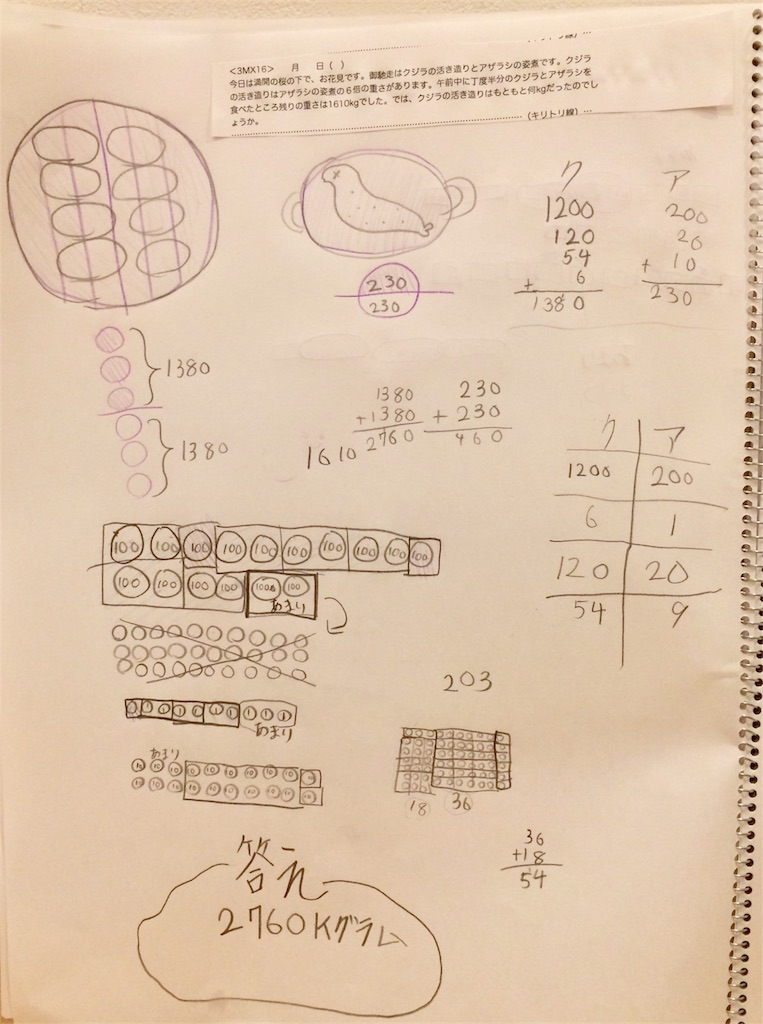 (キリトリ線) …
<3MX16>　月　日( )
今日は満開の桜の下で、お花見です。御馳走はクジラの活き造りとアザラシの姿煮です。クジラ
の活き造りはアザラシの姿煮の６倍の重さがあります。午前中に丁度半分のクジラとアザラシを
食べたところ残りの重さは1610kgでした。では、クジラの活き造りはもともと何kgだったのでし
ょうか。
(キリトリ線) …
230
230
ク
1200
120
54
+ 6
1380
ア
200
20
+ 10
230
1380
1380
1610
1380
+1380
2760
230
+ 230
460
ク ア
1200 200
6 1
120 20
54 9
100 100 100 100 100 100 100 100 100 100
100 100 100 100 100 100
あまり
1 1 1 1 1 1 1 1 1 1
あまり
あまり
10 10 10 10 10 10 10 10 10 10
10 10 10 10 10 10 10 10 10 10
203
18 36
36
+18
54
答え
2760Kグラム